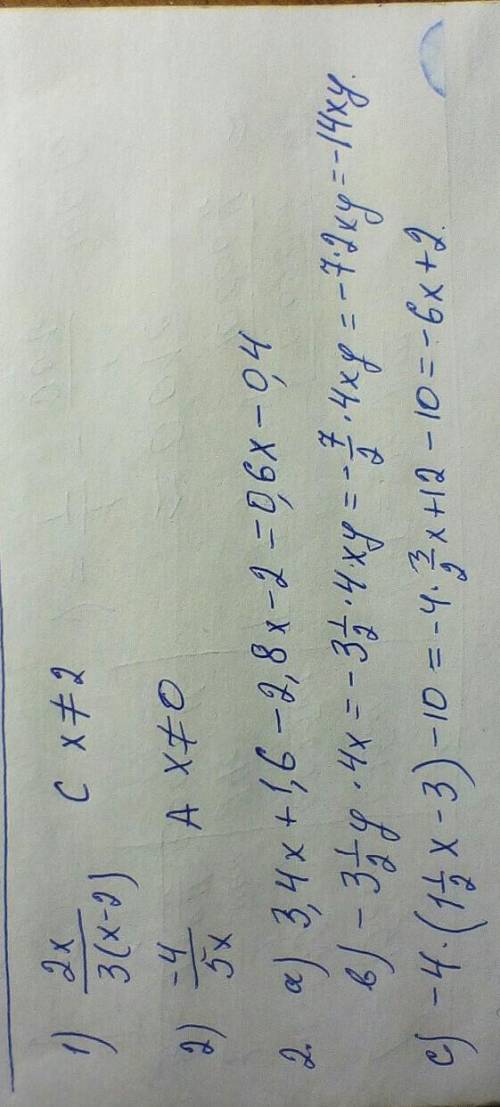 1) 2x/3(x-2) C x≠2
2) -4/5x A x≠0
2. a) 3,4x+1,6-2,8x-2=0,6x-0,4
в) -3 1/2 y·4x=-3 1/2·4·xy=-7/2·4xy=-7·2xy=-14xy.
c) -4·(1 1/2 x-3)-10=-4·3/2 x+12-10=-6x+2.